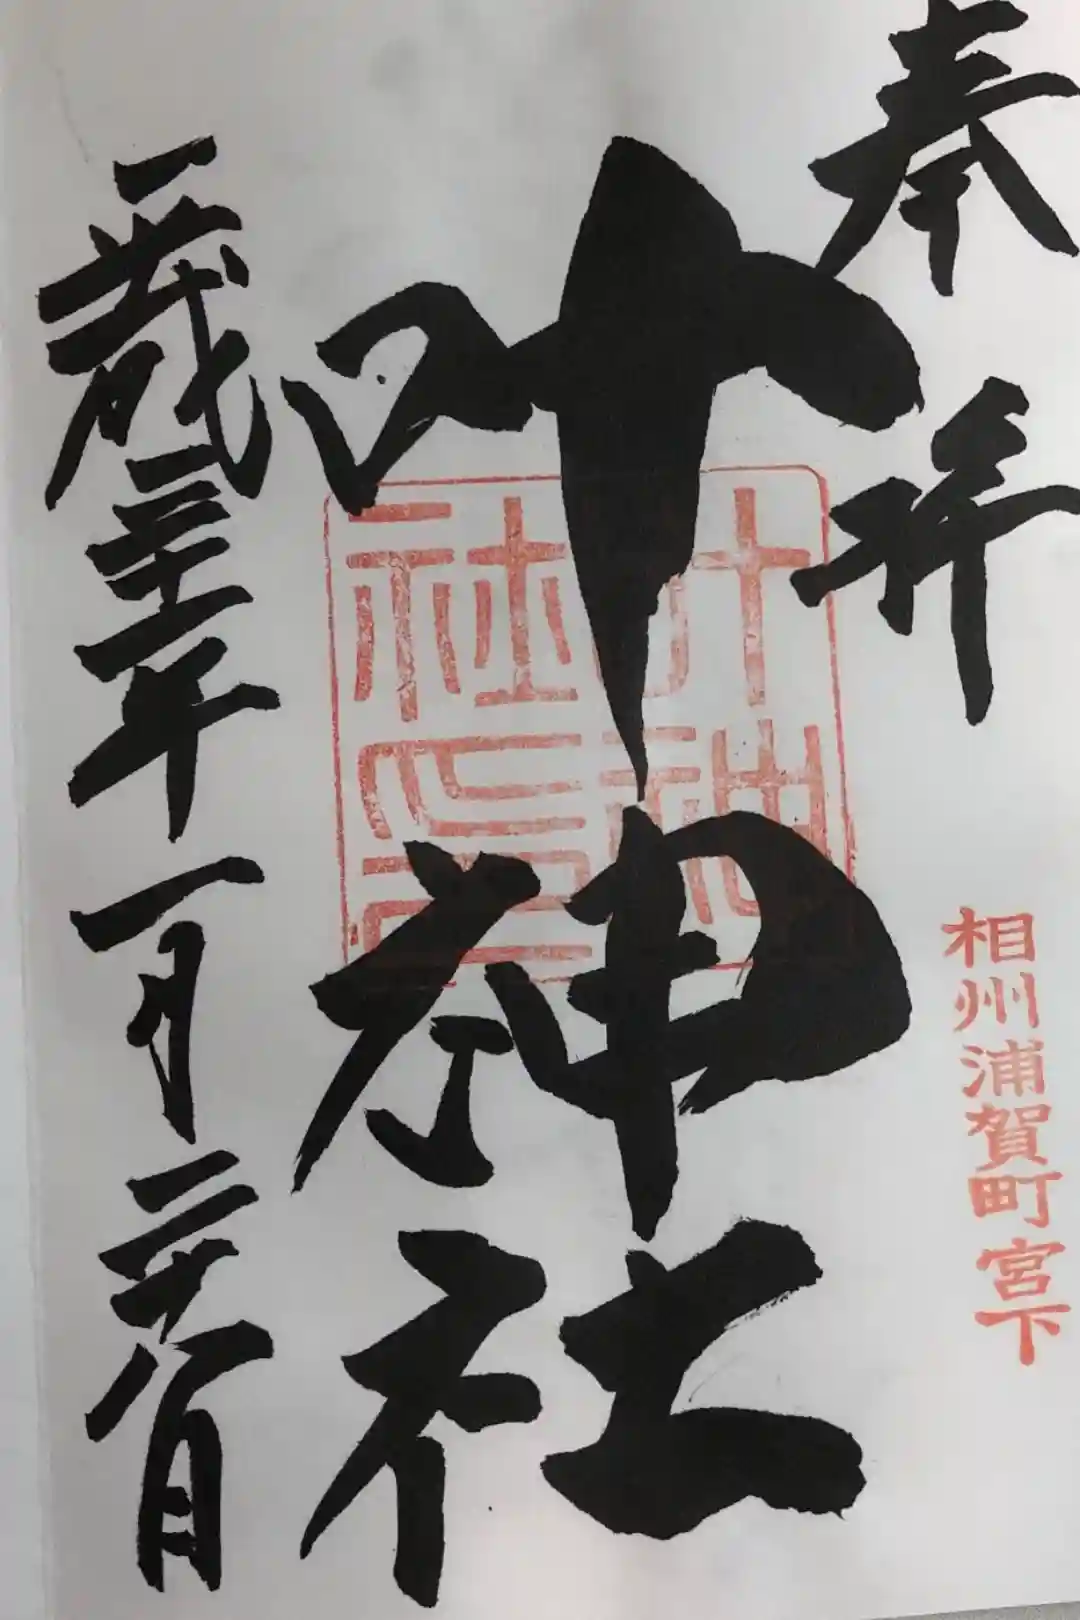 奉拝
相州浦賀町宮下
叶神社
叶神社印
平成三十年一月二十八日